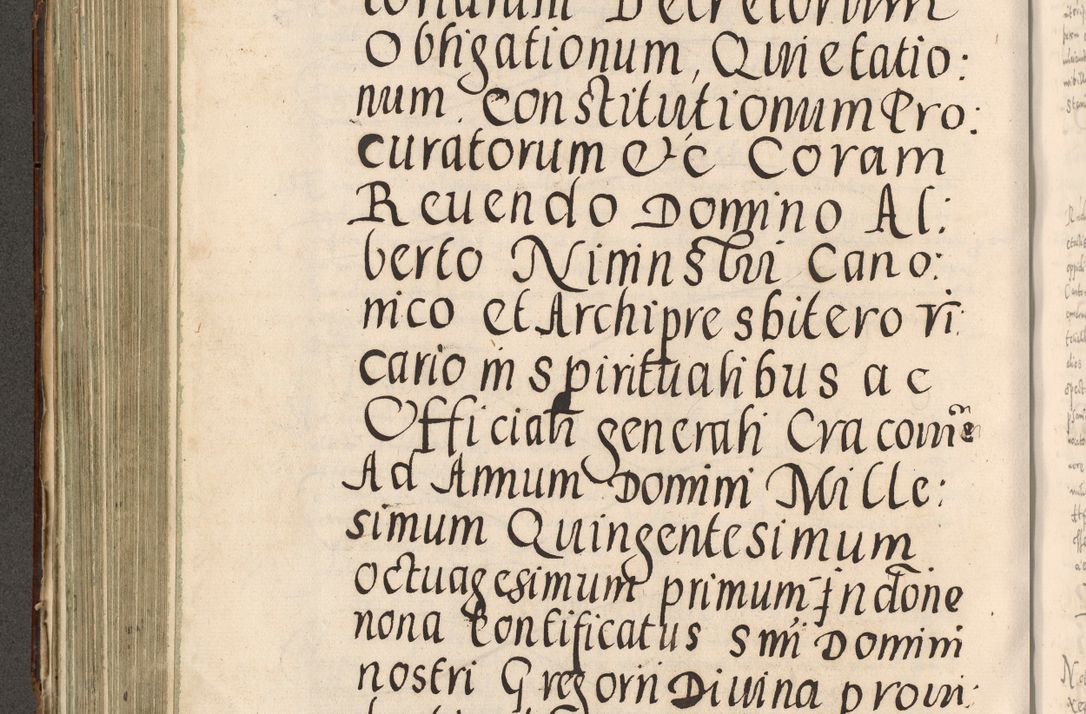 Decretorum
Obligationum, Quietatio:
num constitutionum Pro:
curatorum &c Coram
Reuendo Domino Al:
berto Niminsthi Cano:
nico et Archipresbitero vi
cario in spiritualibus ac
Officiali generali Cracouien
Ad Annum Domini Mille:
simum Quingentesimum
octuagesimum primum Indõne
nona Pontificatus Smi Domini
nostri Gregorii Diuina proui: